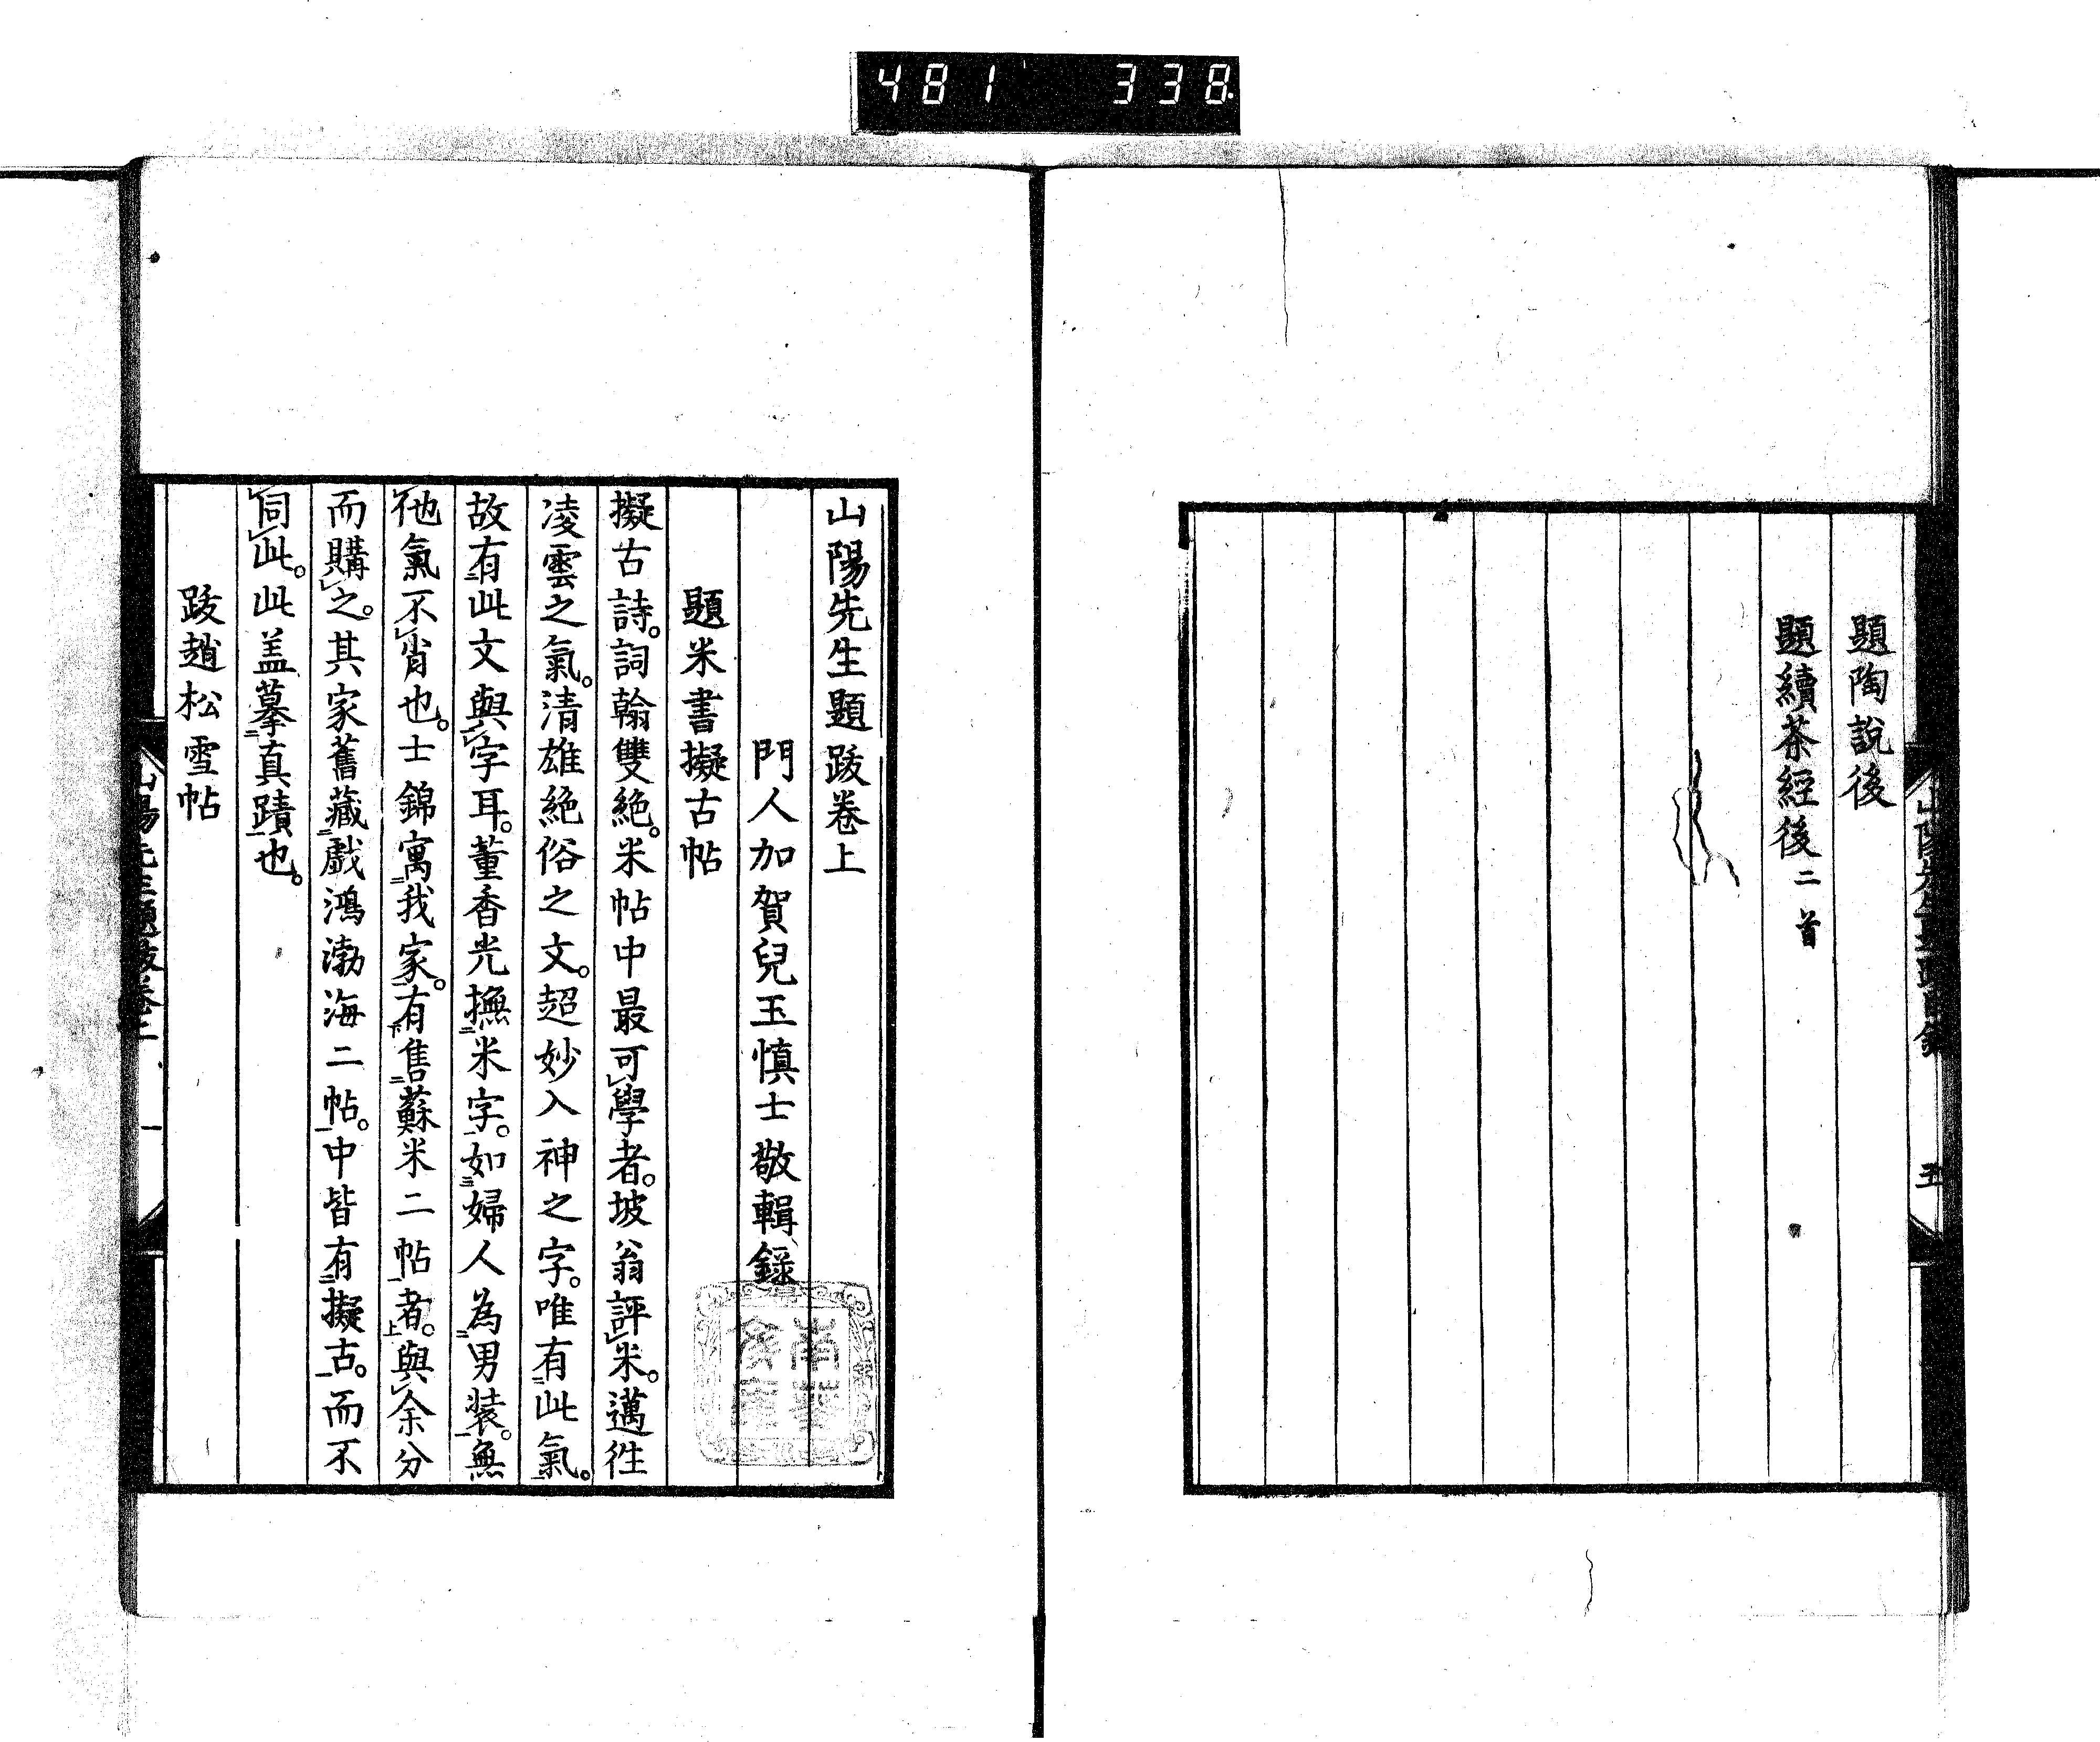 481 338
題陶說後
題續茶經後二首
五
山陽先生題跋卷上
門人加賀兒玉慎士敬輯錄
題米書擬古帖
擬古詩。詞翰雙絶。米帖中最可學者。坡翁評米。邁徃
凌雲之氣。清雄絶俗之文。超妙入神之字。唯有此氣。
故有此文與字耳。董香光撫米字。如婦人為男装。無
他氣不肖也。士錦寓我家。有售蘇米二帖者。與余分
而購之。其家舊藏戲鴻渤海二帖。中皆有擬古。而不
同此。此盖摹真蹟也。
跋趙松雪帖
山陽先生題跋卷上
一